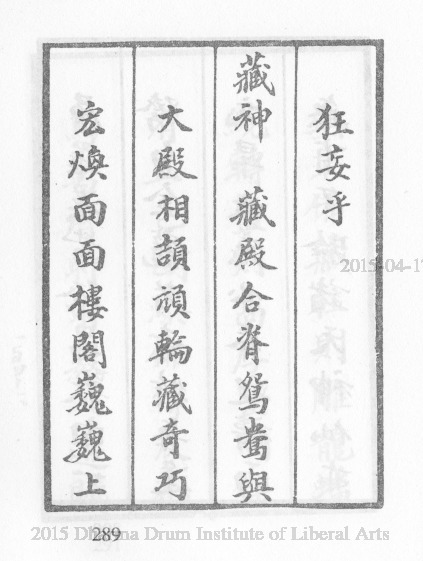 狂妄乎
藏神 藏殿合脊鴛鴦與
大殿相頡頏輪藏奇巧
宏煥面面樓閣巍巍上
2015-04-1
289
2015 Dharma Drum Institute of Liberal Arts